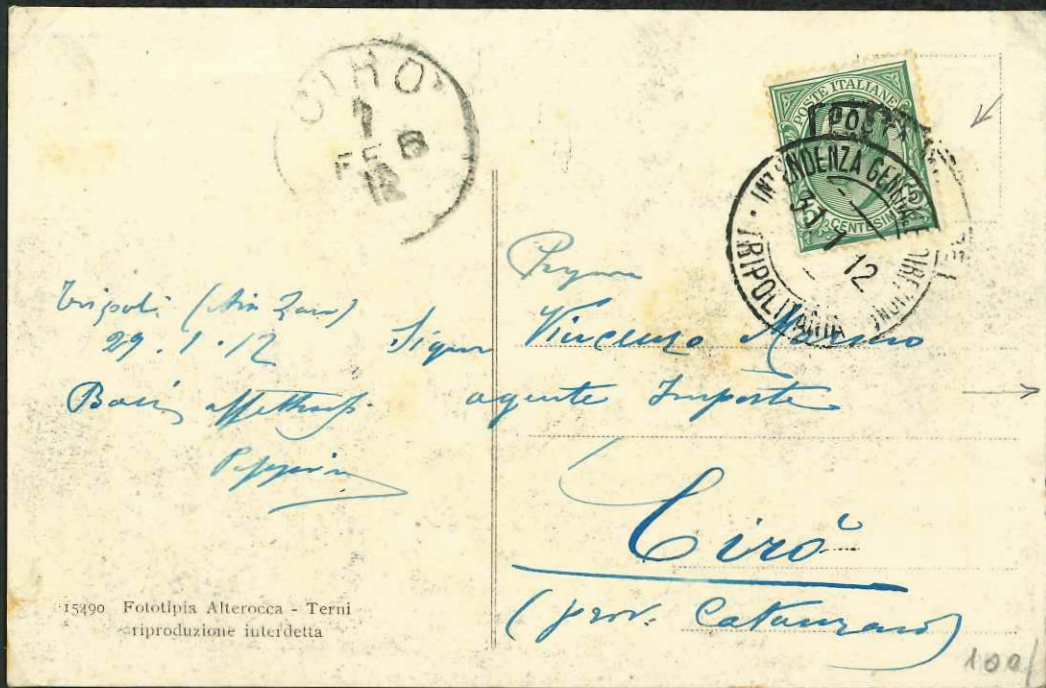 CIRO'
7
FEB
12
POSTE ITALIANE
CENTESIMI
INTENDENZA GENERALE
TRIPOLITANIA
31 1 12
Tripoli (Ain Zara)
29.1.12
Baci affettuosi
Peppino
Signor Vincenzo Marino
agente Imposte
Cirò
(prov. Catanzaro)
15490 Fototipia Alterocca - Terni
riproduzione interdetta
100/